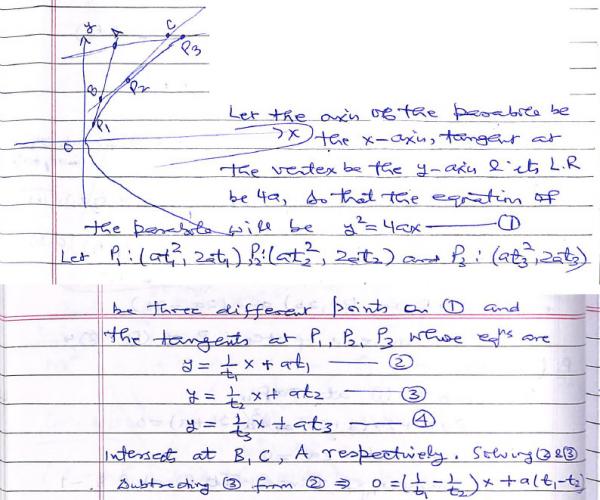 y
A
C
P3
B
P2
P1
O
x
Let the axis of the parabola be
the x-axis, tangent at
the vertex be the y-axis & its L.R
be 4a, so that the equation of
the parabola will be y²=4ax — ①
Let P₁:(at₁², 2at₁), P₂:(at₂², 2at₂) and P₃:(at₃², 2at₃)
be three different points on ① and
the tangents at P₁, P₂, P₃ whose eqⁿs are
y = 1/t₁ x + at₁ — ②
y = 1/t₂ x + at₂ — ③
y = 1/t₃ x + at₃ — ④
intersect at B, C, A respectively. Solving ② & ③
Subtracting ③ from ② ⇒ 0 = (1/t₁ - 1/t₂) x + a(t₁-t₂)